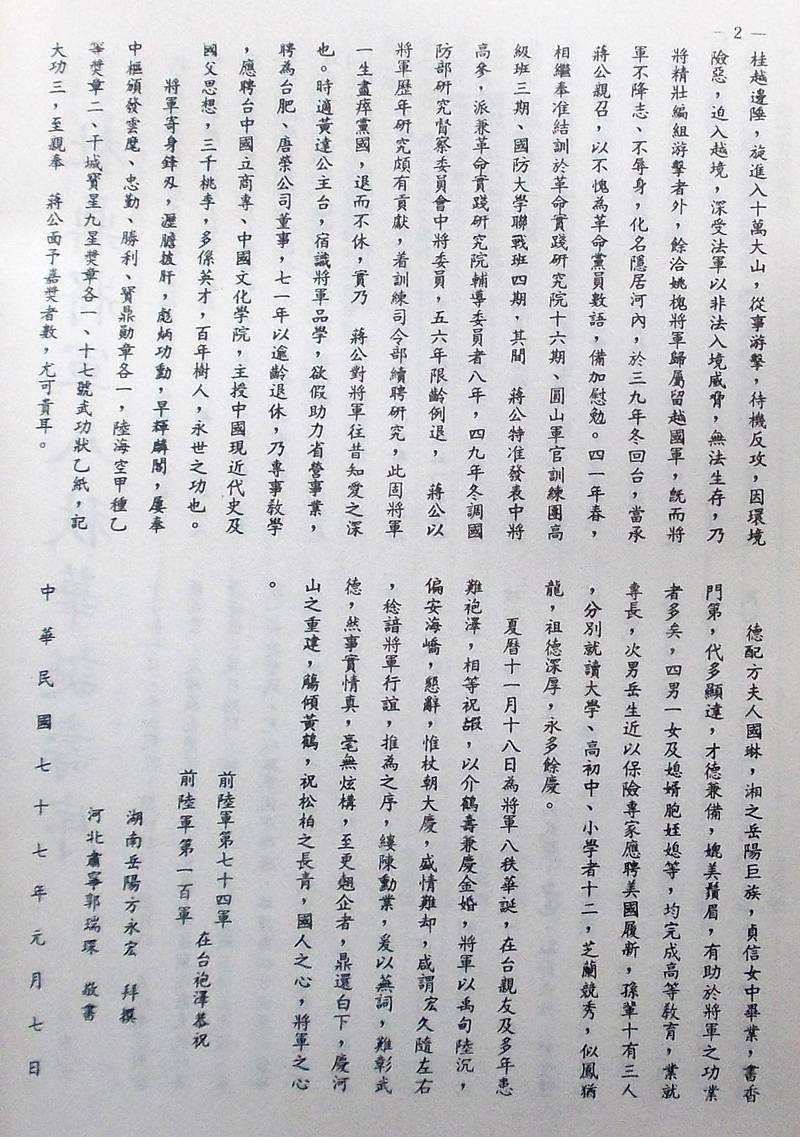 — 2 —
桂越邊陲，旋進入十萬大山，從事游擊，待機反攻，因環境
險惡，迫入越境，深受法軍以非法入境威脅，無法生存，乃
將精壯編組游擊者外，餘洽姚槐將軍歸屬留越國軍，旣而將
軍不降志、不辱身，化名隱居河內，於三九年冬回台，當承
蔣公親召，以不愧為革命黨員數語，備加慰勉。四一年春，
相繼奉准結訓於革命實踐研究院十六期、圓山軍官訓練團高
級班三期、國防大學聯戰班四期，其間　蔣公特准發表中將
高參，派兼革命實踐研究院輔導委員者八年，四九年冬調國
防部研究督察委員會中將委員，五六年限齡例退，　蔣公以
將軍歷年研究頗有貢獻，着訓練司令部續聘研究，此固將軍
一生盡瘁黨國，退而不休，實乃　蔣公對將軍往昔知愛之深
也。時適黃達公主台，宿識將軍品學，欲假助力省營事業，
聘為台肥、唐榮公司董事，七一年以逾齡退休，乃專事教學
，應聘台中國立商專、中國文化學院，主授中國現近代史及
國父思想，三千桃李，多係英才，百年樹人，永世之功也。
將軍寄身鋒刃，瀝膽披肝，彪炳功勳，早輝麟閣，屢奉
中樞頒發雲麾、忠勤、勝利、寶鼎勛章各一，陸海空甲種乙
等獎章二、干城寶星九星獎章各一、十七號武功狀乙紙，記
大功三，至親奉　蔣公面予嘉獎者數，尤可貴耳。
德配方夫人國琳，湘之岳陽巨族，貞信女中畢業，書香
門第，代多顯達，才德兼備，媲美鬚眉，有助於將軍之功業
者多矣，四男一女及媳婿胞姪媳等，均完成高等教育，業就
專長，次男岳生近以保險專家應聘美國履新，孫輩十有三人
，分別就讀大學、高初中、小學者十二，芝蘭競秀，似鳳猶
龍，祖德深厚，永多餘慶。
夏曆十一月十八日為將軍八秩華誕，在台親友及多年患
難袍澤，相等祝嘏，以介鶴壽兼慶金婚，將軍以禹甸陸沉，
偏安海嶠，懇辭，惟杖朝大慶，盛情難却，咸謂宏久隨左右
，稔諳將軍行誼，推為之序，縷陳勳業，爰以蕪詞，難彰武
德，然事實情真，毫無炫構，至更翹企者，鼎還白下，慶河
山之重建，觴傾黃鶴，祝松柏之長青，國人之心，將軍之心
。
前陸軍第七十四軍
前陸軍第一百軍
在台袍澤恭祝
湖南岳陽方永宏　拜撰
河北肅寧郭瑞琛　敬書
中華民國七十七年元月七日